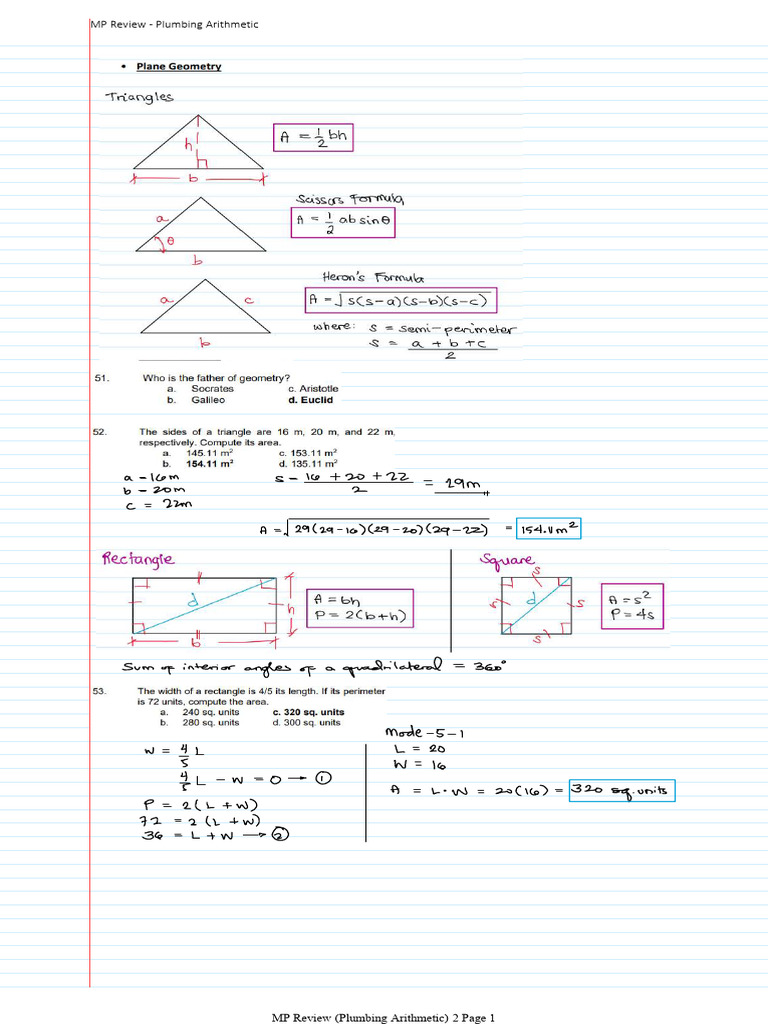 MP Review - Plumbing Arithmetic
• Plane Geometry
Triangles
h
b
A = 1/2 bh
Scissors Formula
a
θ
b
A = 1/2 ab sin θ
Heron's Formula
a
c
b
A = √s(s-a)(s-b)(s-c)
where: s = semi-perimeter
s = a + b + c / 2
51. Who is the father of geometry?
a. Socrates c. Aristotle
b. Galileo d. Euclid
52. The sides of a triangle are 16 m, 20 m, and 22 m,
respectively. Compute its area.
a. 145.11 m² c. 153.11 m²
b. 154.11 m² d. 135.11 m²
a - 16m
b - 20m
c = 22m
s - 16 + 20 + 22 / 2 = 29m
A = √29(29-16)(29-20)(29-22) = 154.11m²
Rectangle
d
h
b
A = bh
P = 2(b+h)
Square
s
s
d
s
s
A = s²
P = 4s
Sum of interior angles of a quadrilateral = 360°
53. The width of a rectangle is 4/5 its length. If its perimeter
is 72 units, compute the area.
a. 240 sq. units c. 320 sq. units
b. 280 sq. units d. 300 sq. units
W = 4/5 L
4/5 L - W = 0 → ①
P = 2(L + W)
72 = 2(L + W)
36 = L + W → ②
mode -5-1
L = 20
W = 16
A = L·W = 20(16) = 320 sq.units
MP Review (Plumbing Arithmetic) 2 Page 1